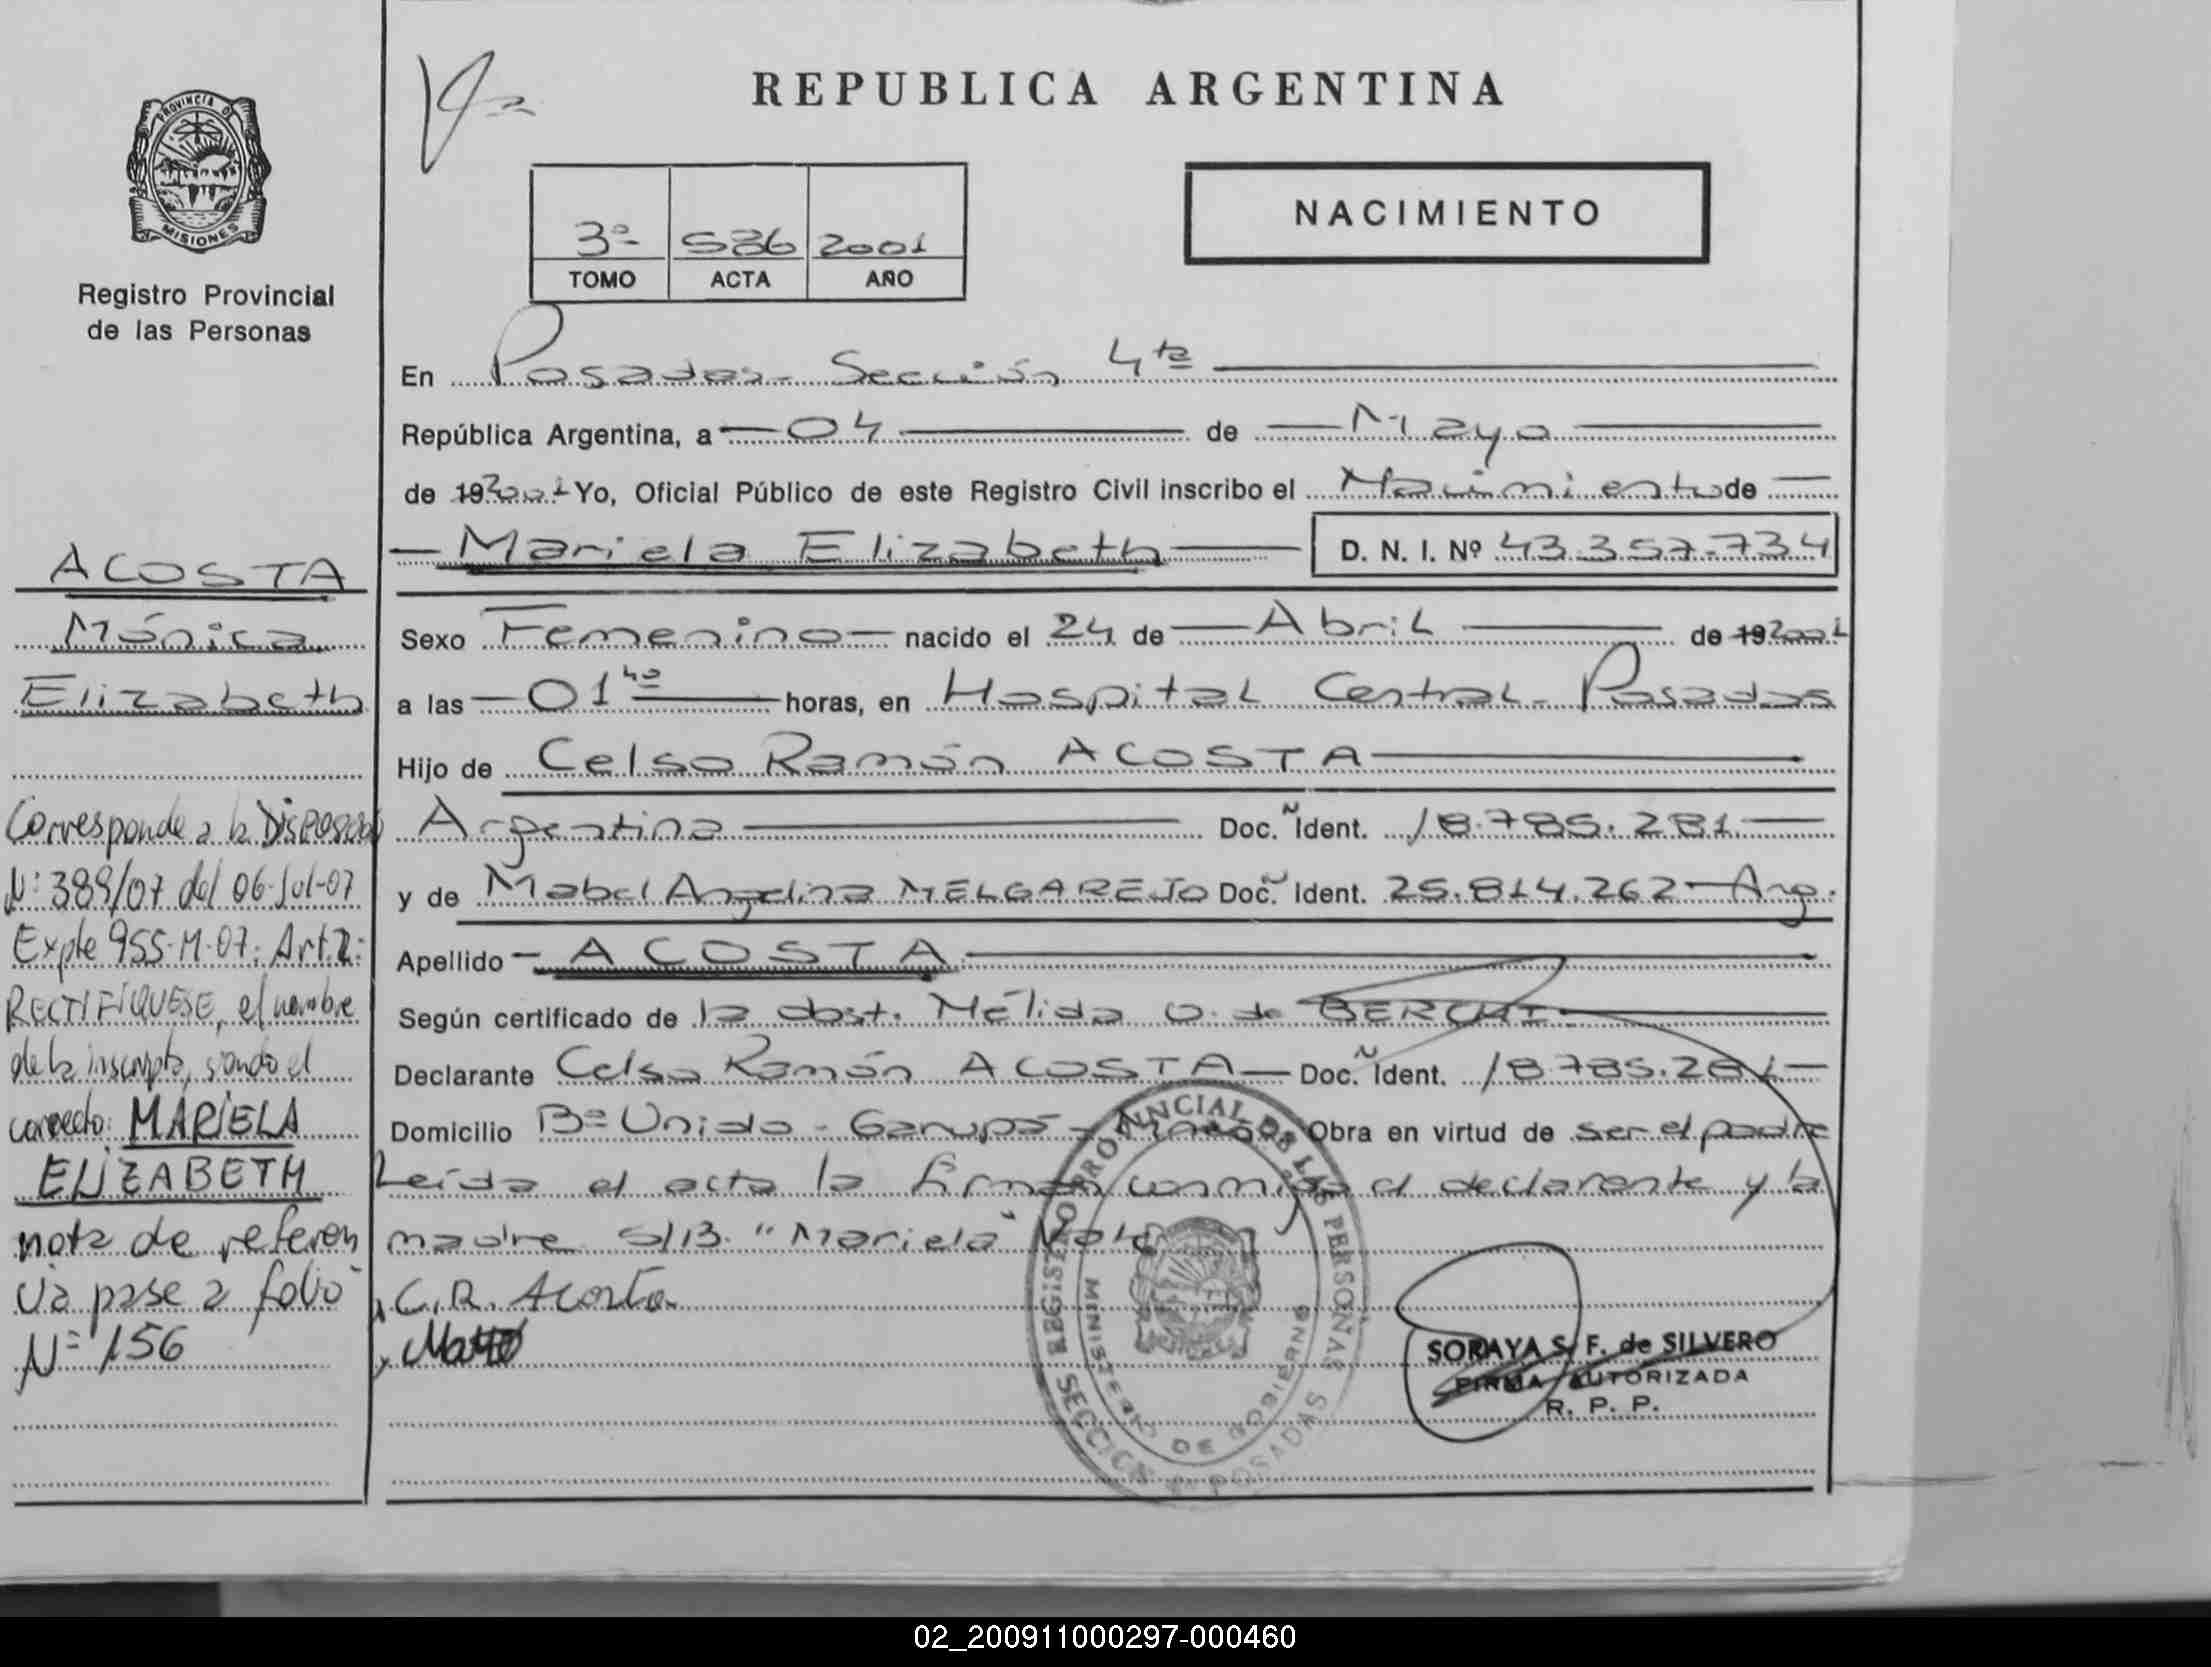 PROVINCIA DE
MISIONES
Registro Provincial
de las Personas
ACOSTA
Mónica
Elizabeth
Corresponde a la Disposición
N: 389/07 del 06-Jul-07
Expte 955-M-07: Art.2:
RECTIFIQUESE, el nombre
de la inscripta, siendo el
correcto: MARIELA
ELIZABETH
nota de referen
cia pase a folio
Nº 156
REPUBLICA ARGENTINA
NACIMIENTO
3º 536 2001
TOMO ACTA AÑO
En Posadas - Sección 4ta
República Argentina, a 04 de Mayo
de 19 2001 Yo, Oficial Público de este Registro Civil inscribo el Nacimiento de
Mariela Elizabeth D. N. I. Nº 43.357.734
Sexo Femenino nacido el 24 de Abril de 19 2001
a las 01 40 horas, en Hospital Central - Posadas
Hijo de Celso Ramón ACOSTA
Argentina Doc. Ident. 18.785.281
y de Mabel Angelina MELGAREJO Doc. Ident. 25.814.262 - Arg.
Apellido - ACOSTA
Según certificado de la obst. Nélida O. de
Declarante Celso Ramón ACOSTA - Doc. Ident. 18.785.281
Domicilio Bº Unido - Garupá - Obra en virtud de ser el padre
Leída el acta la firman conmigo el declarante y la
madre S/B. "Mariela" Vale
C.R. Acosta
REGISTRO PROVINCIAL DE LAS PERSONAS
MINISTERIO DE GOBIERNO
SECCION POSADAS
SORAYA S. F. de SILVERO
FIRMA AUTORIZADA
R. P. P.
02_200911000297-000460